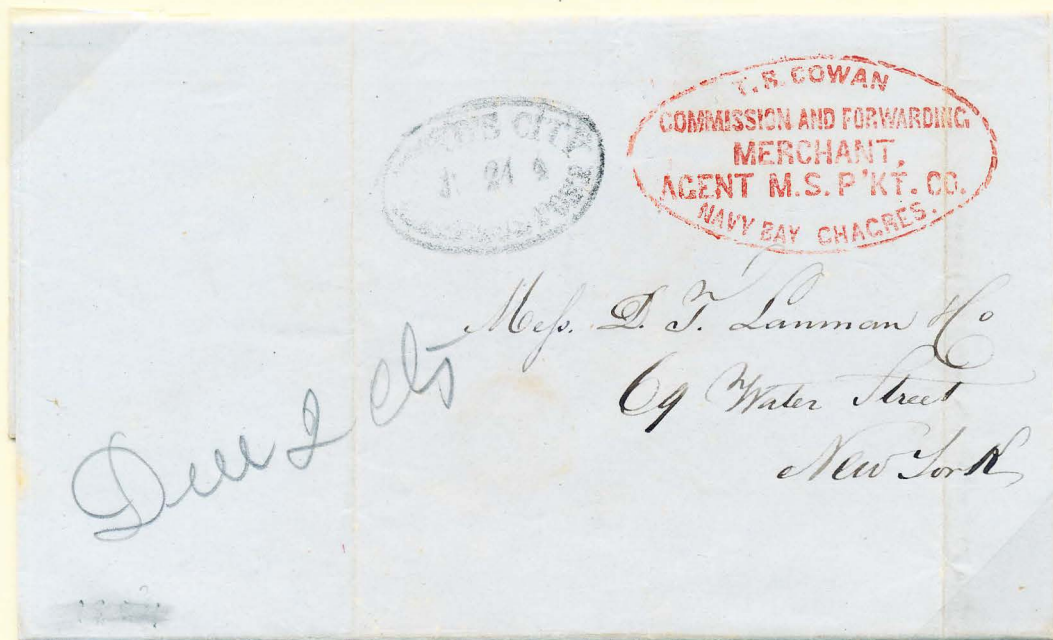 T. B. COWAN
COMMISSION AND FORWARDING
MERCHANT,
AGENT M.S. P'KT. CO.
NAVY BAY CHAGRES.
CITY
24
POST
Mess. D. T. Lanman & Co
69 Water Street
New York
Due 2 cts